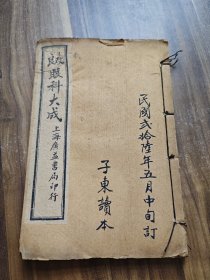 民國貳拾陸年五月中旬訂
子東讀本
眼科大成
上海廣益書局印行